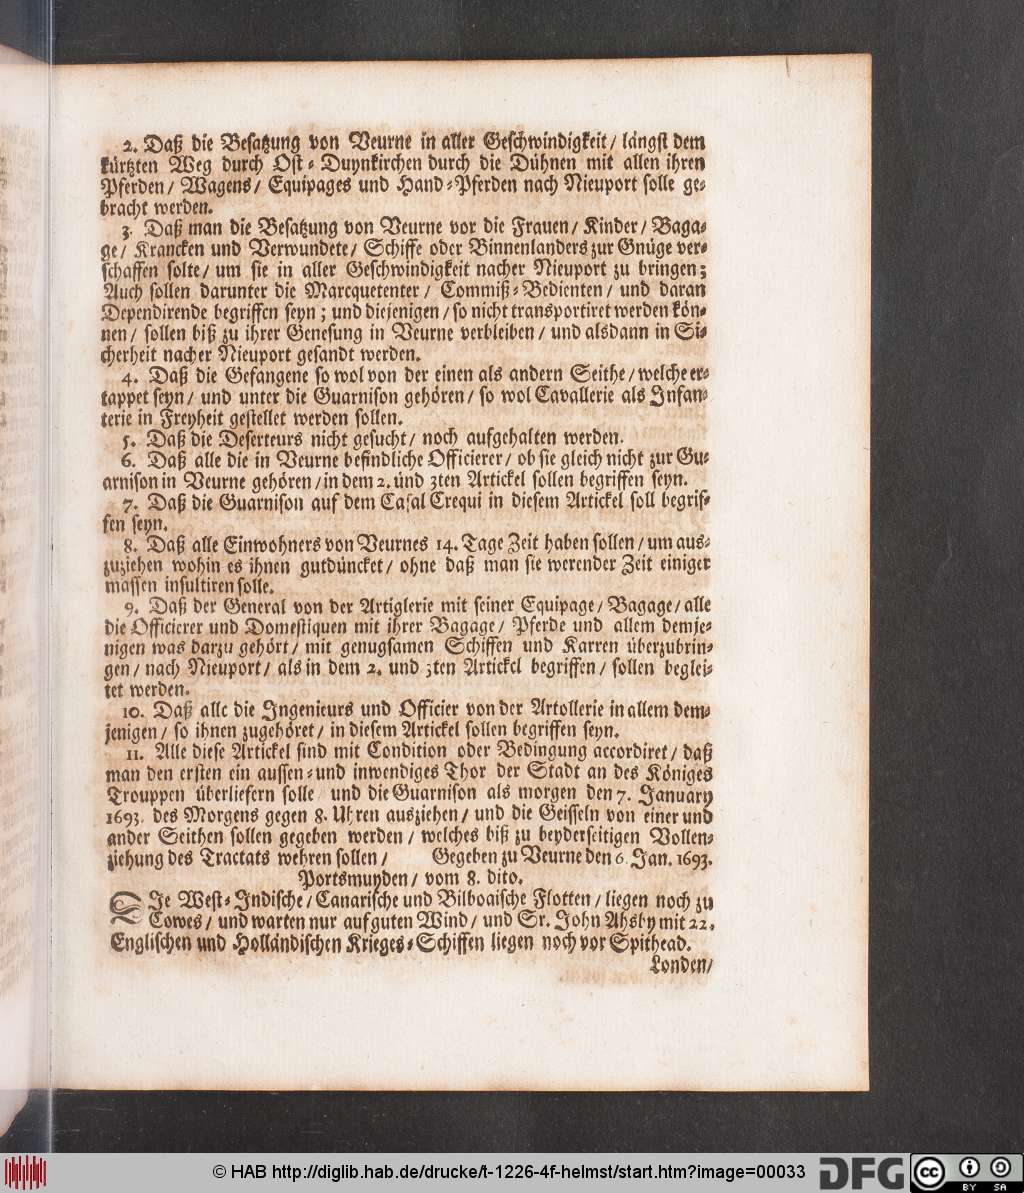 2. Daß die Besatzung von Veurne in aller Geschwindigkeit / längst dem
kürtzten Weg durch Ost-Duynkirchen durch die Dühnen mit allen ihren
Pferden / Wagens / Equipages und Hand-Pferden nach Nieuport solle ge-
bracht werden.
3. Daß man die Besatzung von Veurne vor die Frauen / Kinder / Baga-
ge / Krancken und Verwundete / Schiffe oder Binnenlanders zur Gnüge ver-
schaffen solte / um sie in aller Geschwindigkeit nacher Nieuport zu bringen;
Auch sollen darunter die Marcquetenter / Commiß-Bedienten / und daran
Dependirende begriffen seyn; und diejenigen / so nicht transportiret werden kön-
nen / sollen biß zu ihrer Genesung in Veurne verbleiben / und alsdann in Si-
cherheit nacher Nieuport gesandt werden.
4. Daß die Gefangene so wol von der einen als andern Seithe / welche er-
tappet seyn / und unter die Guarnison gehören / so wol Cavallerie als Infan-
terie in Freyheit gestellet werden sollen.
5. Daß die Deserteurs nicht gesucht / noch aufgehalten werden.
6. Daß alle die in Veurne befindliche Officierer / ob sie gleich nicht zur Gu-
arnison in Veurne gehören / in dem 2. und 3ten Artickel sollen begriffen seyn.
7. Daß die Guarnison auf dem Casal Crequi in diesem Artickel soll begrif-
fen seyn.
8. Daß alle Einwohners von Veurnes 14. Tage Zeit haben sollen / um aus-
zuziehen wohin es ihnen gutdüncket / ohne daß man sie werender Zeit einiger
massen insultiren solle.
9. Daß der General von der Artiglerie mit seiner Equipage / Bagage / alle
die Officierer und Domestiquen mit ihrer Bagage / Pferde und allem demje-
nigen was darzu gehört / mit genugsamen Schiffen und Karren überzubrin-
gen / nach Nieuport / als in dem 2. und 3ten Artickel begriffen / sollen beglei-
tet werden.
10. Daß alle die Ingenieurs und Officier von der Artollerie in allem dem-
jenigen / so ihnen zugehöret / in diesem Artickel sollen begriffen seyn.
11. Alle diese Artickel sind mit Condition oder Bedingung accordiret / daß
man den ersten ein aussen- und inwendiges Thor der Stadt an des Königes
Trouppen überliefern solle / und die Guarnison als morgen den 7. January
1693. des Morgens gegen 8. Uhren ausziehen / und die Geisseln von einer und
ander Seithen sollen gegeben werden / welches biß zu beyderseitigen Vollen-
ziehung des Tractats wehren sollen / Gegeben zu Veurne den 6. Jan. 1693.
Portsmuyden / vom 8. dito.
DIe West-Indische / Canarische und Bilboaische Flotten / liegen noch zu
Cowes / und warten nur auf guten Wind / und Sr. John Ahsby mit 22.
Englischen und Holländischen Krieges-Schiffen liegen noch vor Spithead.
Londen /
© HAB http://diglib.hab.de/drucke/t-1226-4f-helmst/start.htm?image=00033
DFG
cc BY SA